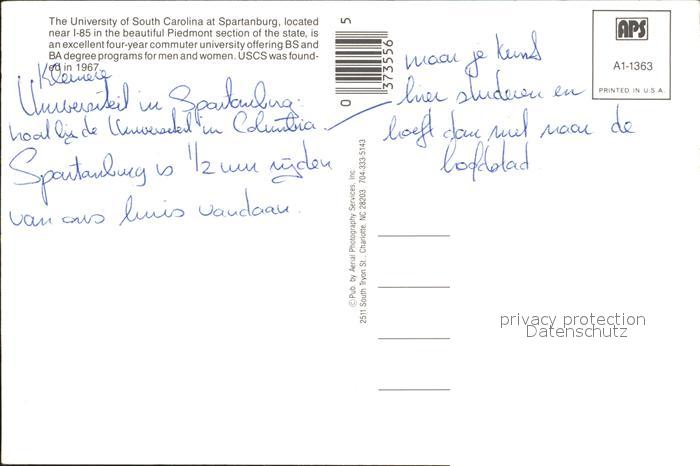 The University of South Carolina at Spartanburg, located
near I-85 in the beautiful Piedmont section of the state, is
an excellent four-year commuter university offering BS and
BA degree programs for men and women. USCS was found-
ed in 1967.
Kleinere
Universiteit in Spartanburg.
hoort bij de Universiteit in Columbia
Spartanburg is 1/2 uur rijden
van ons huis vandaan.
maar je kunt
hier studeren en
hoeft dan niet naar de
hoofdstad.
5
373556
0
©Pub. by Aerial Photography Services, Inc.
2511 South Tryon St., Charlotte, NC 28203 704-333-5143
APS
A1-1363
PRINTED IN U.S.A.
privacy protection
Datenschutz